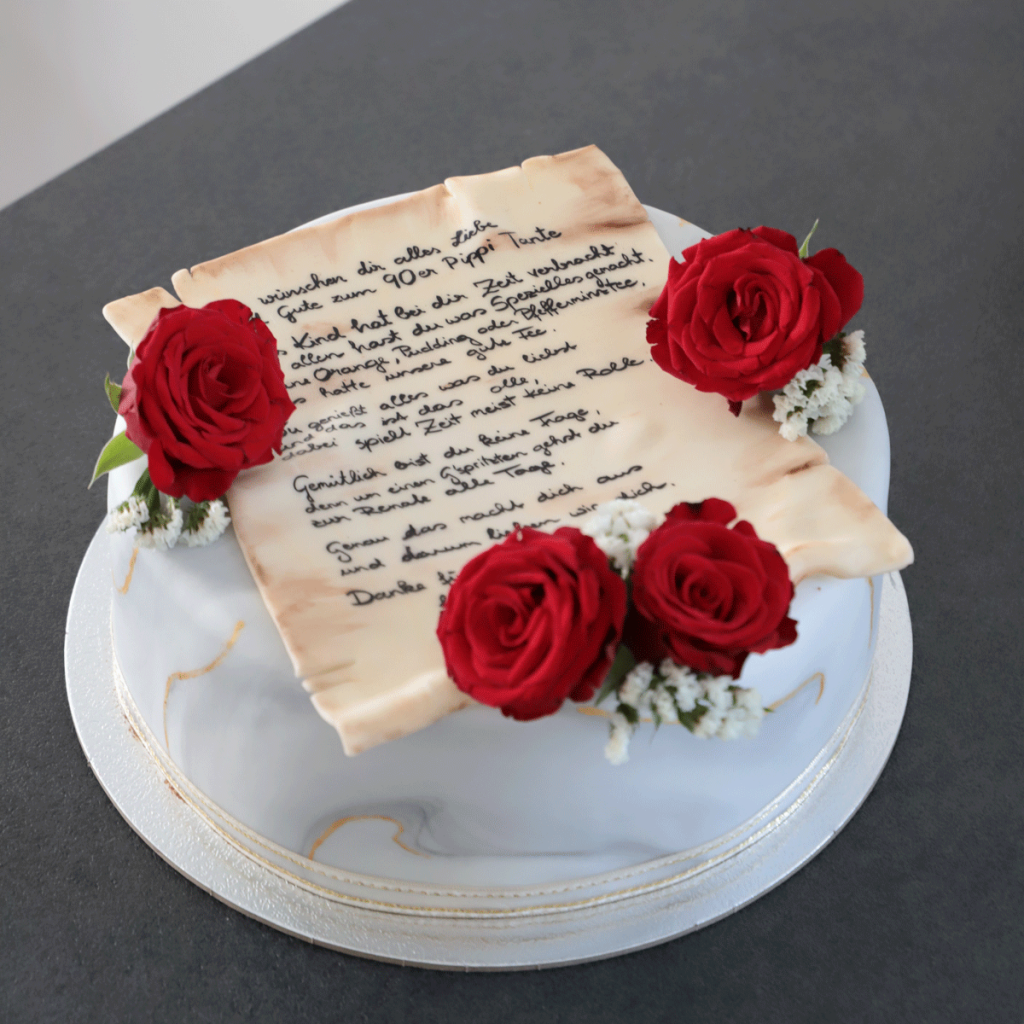 wünschen dir alles Liebe
Gute zum 90er Pippi Tante
Kind hat bei dir Zeit verbracht
allen hast du was Spezielles gemacht.
Orange, Pudding oder Pfefferminztee,
hatte unsere gute Fee.
Du genießt alles was du liebst
und das ist das olle,
dabei spielt Zeit meist keine Rolle.
Gemütlich bist du keine Frage,
denn un einen Gspritzten gehst du
zur Renate alle Tage.
Genau das macht dich aus
und darum lieben wir dich.
Danke